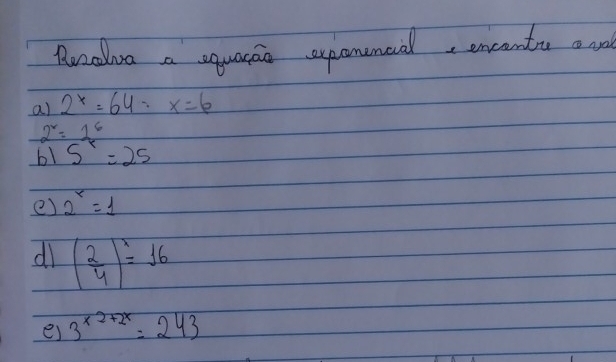 Resolva a equação exponencial e encontre o val
a) 2^x = 64 = x = 6
2^x = 2^6
b) 5^x = 25
c) 2^x = 1
d) (2/4)^x = 16
e) 3^x 2+2x = 243